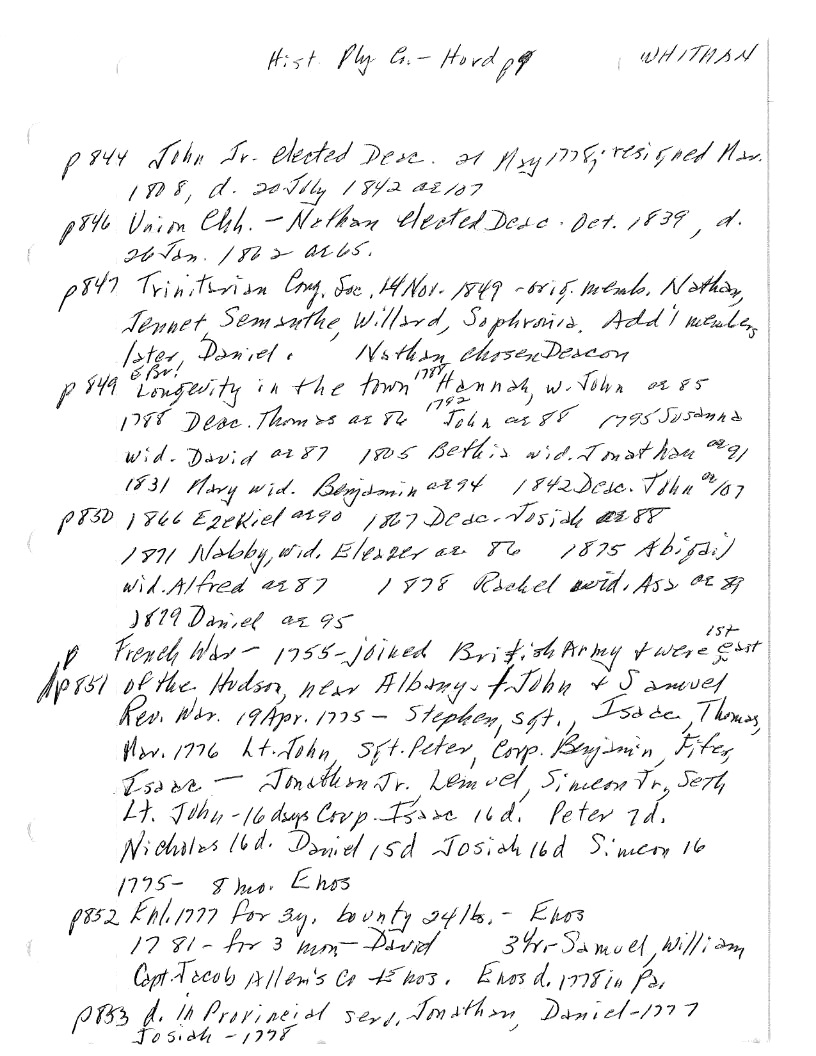 Hist. Ply Co. - Hurd p9 WHITMAN
p844 John Jr. elected Deac. 21 May 1778; resigned Mar.
1808, d. 20 July 1842 ae 107
p846 Union Chh. - Nathan elected Deac. Oct. 1839, d.
26 Jan. 1862 ae 65.
p847 Trinitarian Cong. Soc. 14 Nov. 1849 - orig. memb. Nathan,
Jennet, Semanthe, Willard, Sophronia. Add'l members
later, Daniel. Nathan chosen Deacon
E. Br!
p849 Longevity in the town 1788 Hannah, w. John ae 85
1788 Deac. Thomas ae 86 1792 John ae 88 1795 Susanna
wid. David ae 87 1805 Bethia wid. Jonathan ae 91
1831 Mary wid. Benjamin ae 94 1842 Deac. John ae 107
p850 1866 Ezekiel ae 90 1867 Deac. Josiah ae 88
1871 Nabby, wid. Eleazer ae 86 1875 Abigail
wid. Alfred ae 87 1878 Rachel wid. Asa ae 89
1879 Daniel ae 95
French War - 1755 - joined British Army & were 1st east
p851 of the Hudson, near Albany. John & Samuel
Rev. War. 19 Apr. 1775 - Stephen, sgt., Isaac, Thomas,
Mar. 1776 Lt. John, Sgt. Peter, Corp. Benjamin, Fifer,
Isaac - Jonathan Jr., Lemuel, Simeon Jr., Seth
Lt. John - 16 days Corp. Isaac 16 d. Peter 7 d.
Nicholas 16 d. Daniel 15 d Josiah 16 d Simeon 16
1775 - 8 mo. Enos
p852 Enl. 1777 for 3 y. bounty 24 lbs. - Enos
1781 - for 3 mon - David 3 yr - Samuel, William
Capt. Jacob Allen's Co Enos. Enos d. 1778 in Pa.
p853 d. in Provincial serv. Jonathan, Daniel - 1777
Josiah - 1778